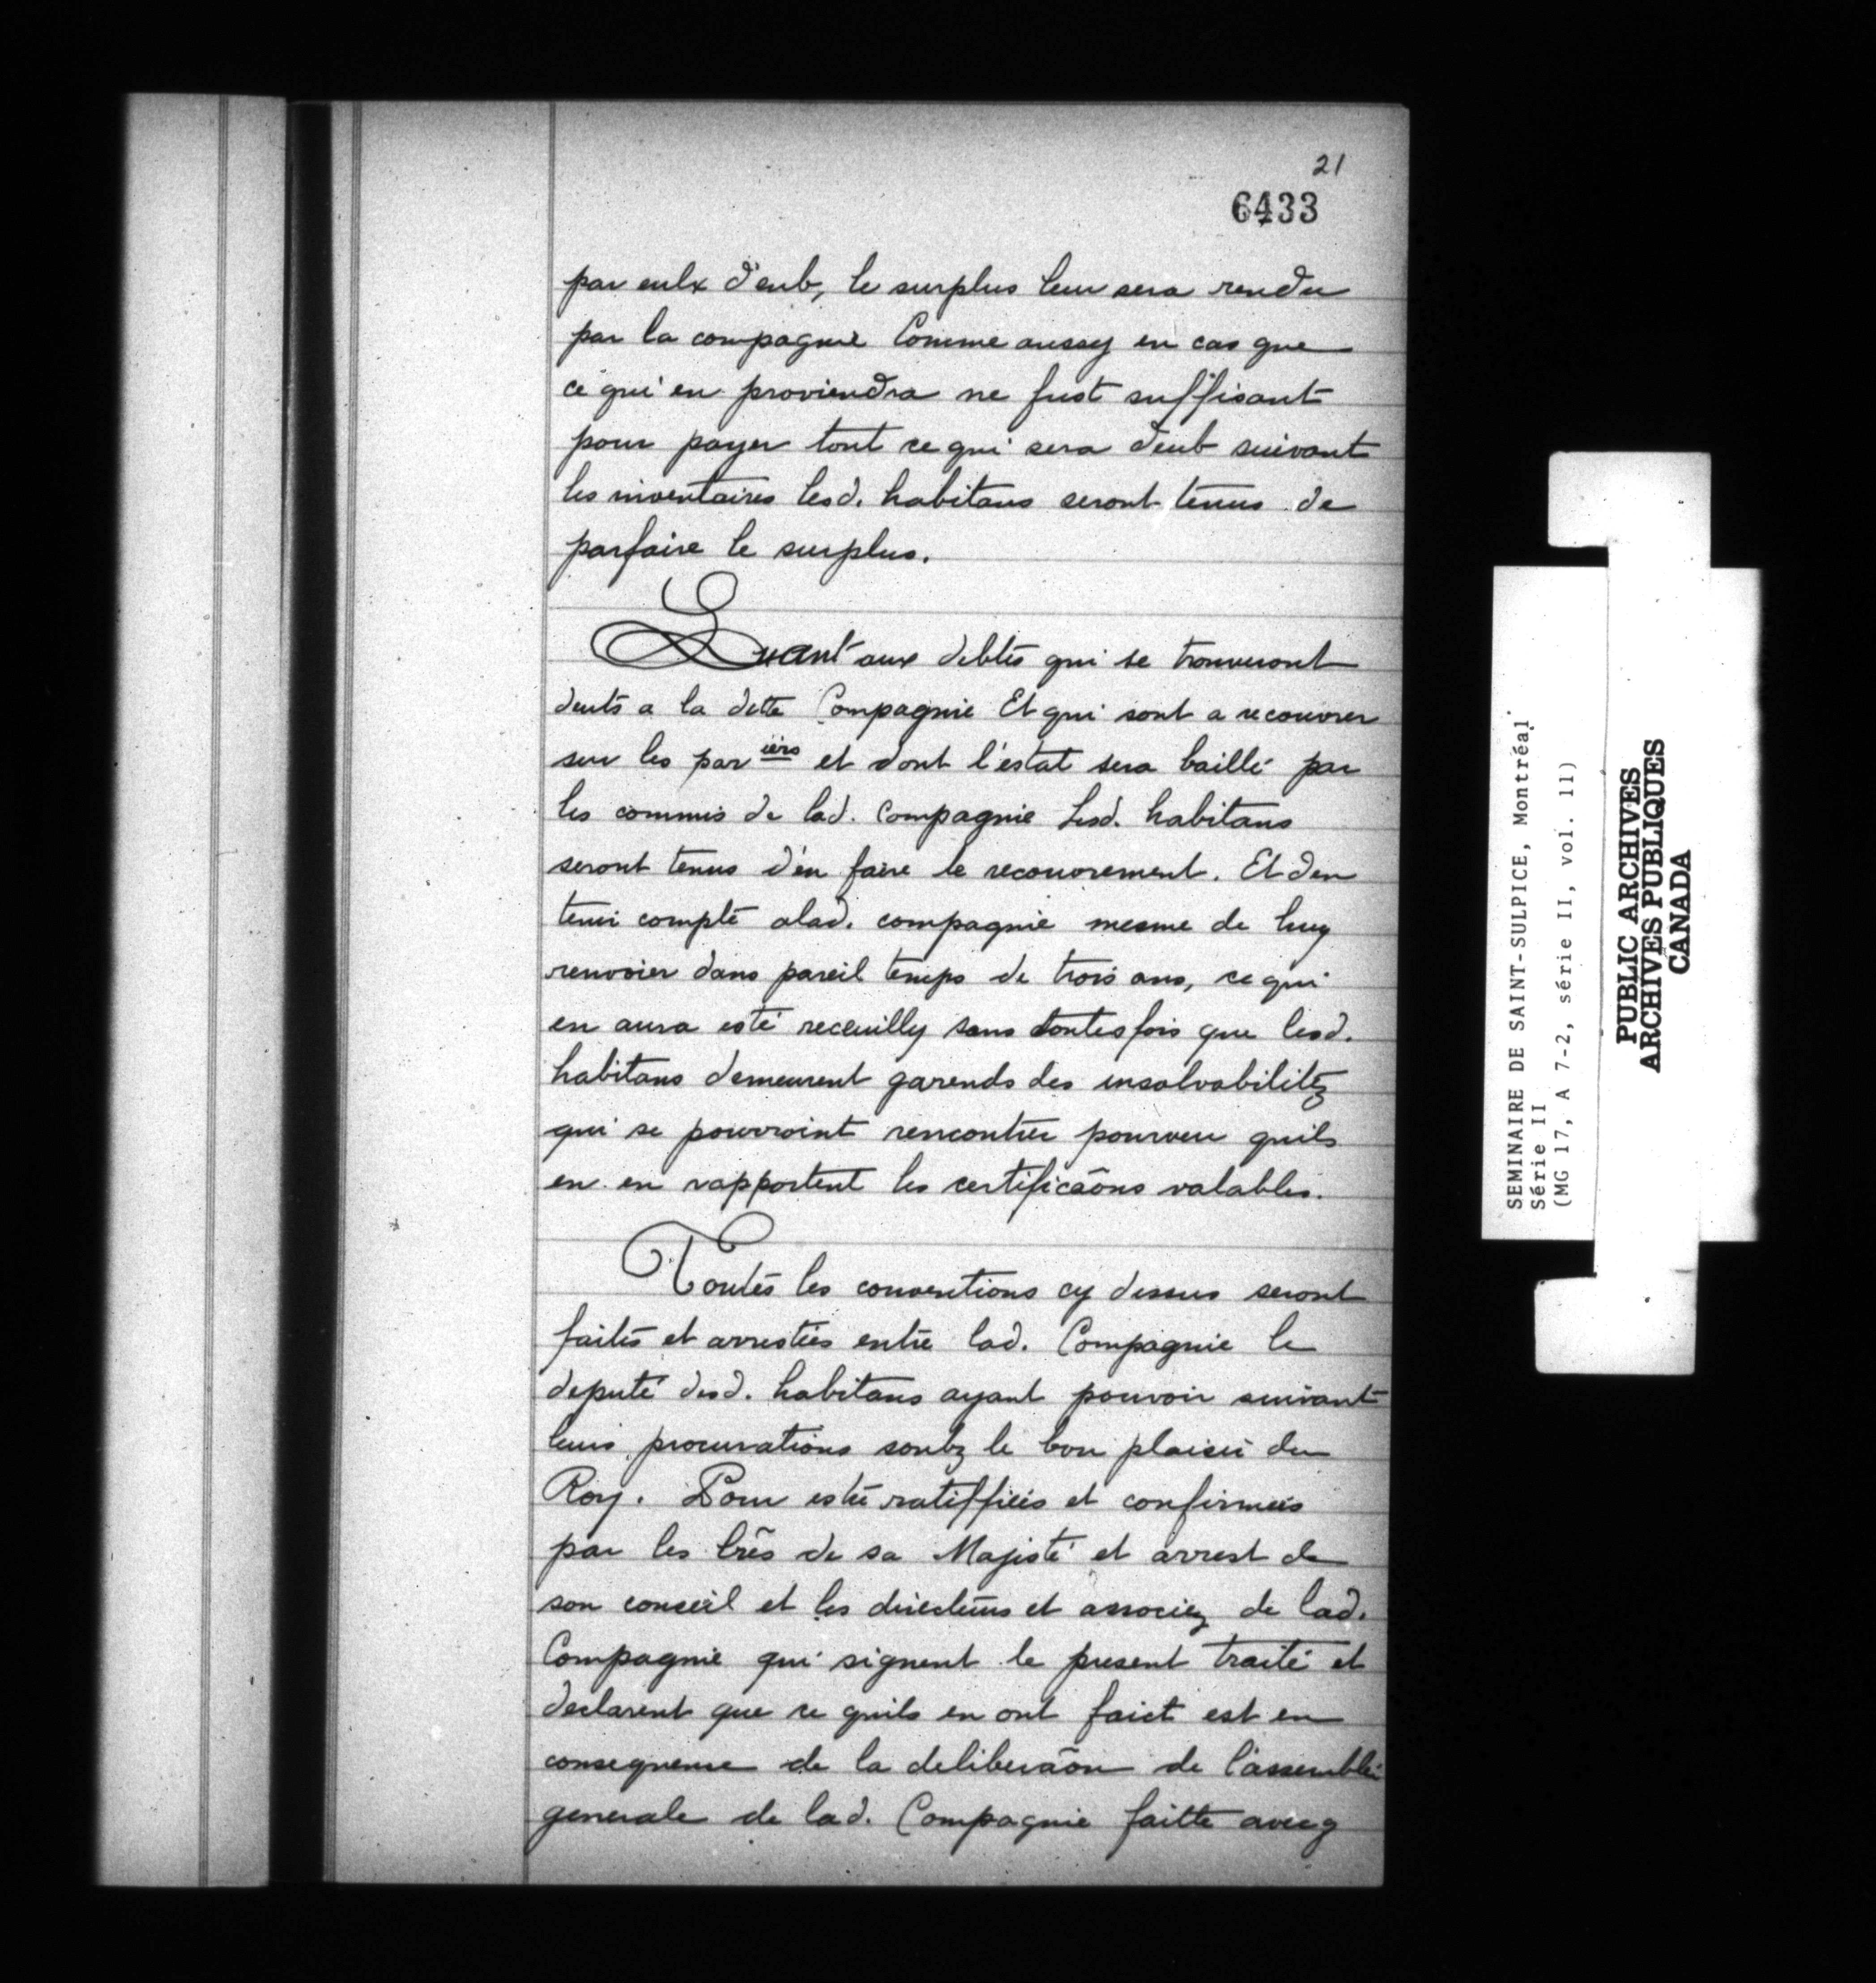 21
6433
par eulx d'eub, le surplus leur sera rendu
par la compagnie Comme aussy en cas que
ce qui en proviendra ne fust suffisant
pour payer tout ce qui sera deub suivant
les inventaires lesd. habitans seront tenus de
parfaire le surplus.
Quant aux debtes qui se trouveront
deuts a la dette Compagnie Et qui sont a recouvrer
sur les par iers et dont l'estat sera baillé par
les commis de lad. Compagnie Lesd. habitans
seront tenus d'en faire le recouvrement. Et den
tenir compte alad. compagnie mesme de luy
renvoier dans pareil temps de trois ans, ce qui
en aura esté receuilly sans toutesfois que lesd.
habitans demeurent garends des insolvabilitez
qui se pourroint rencontrer pourveu quils
en en rapportent les certificaõns valables.
Toutes les conventions cy dessus seront
faites et arrestées entre lad. Compagnie le
deputé desd. habitans ayant pouvoir suivant
leurs procurations soubz le bon plaisir du
Roy. Pour estre ratiffiées et confirmées
par les lrẽs de sa Majesté et arrest de
son conseil et les directeurs et associez de lad.
Compagnie qui signent le present traité et
declarent que ce quils en ont faict est en
consequence de la deliberãon de l'assemblée
generale de lad. Compagnie faitte avecq
SEMINAIRE DE SAINT-SULPICE, Montréal
Série II
(MG 17, A 7-2, série II, vol. 11)
PUBLIC ARCHIVES
ARCHIVES PUBLIQUES
CANADA